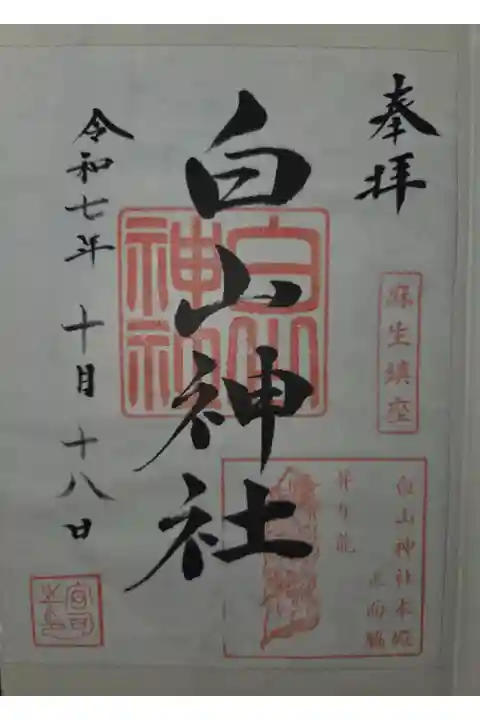 奉拝
麻生鎮座
白山神社本殿
正面脇
昇り龍
白山神社
白山
神社
令和七年 十月 十八日
宮司
之印